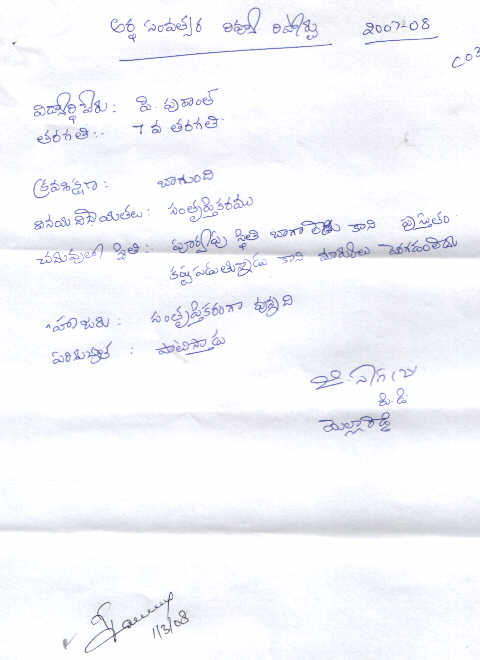 అర్ధ సంవత్సర రిపోర్టు 2007-08
విద్యార్థి పేరు : పి. ప్రశాంత్
తరగతి :- 7 వ తరగతి
క్రమశిక్షణ : బాగుంది
వినయ విధేయతలు : సంతృప్తికరము
చదువులో స్థితి : పూర్వపు స్థితి బాగా లేదు కాని ప్రస్తుతం
కష్టపడుతున్నాడు కాని మార్కులు
హాజరు : సంతృప్తికరంగా వున్నది
పరిశుభ్రత : పాటిస్తాడు
1/3/08